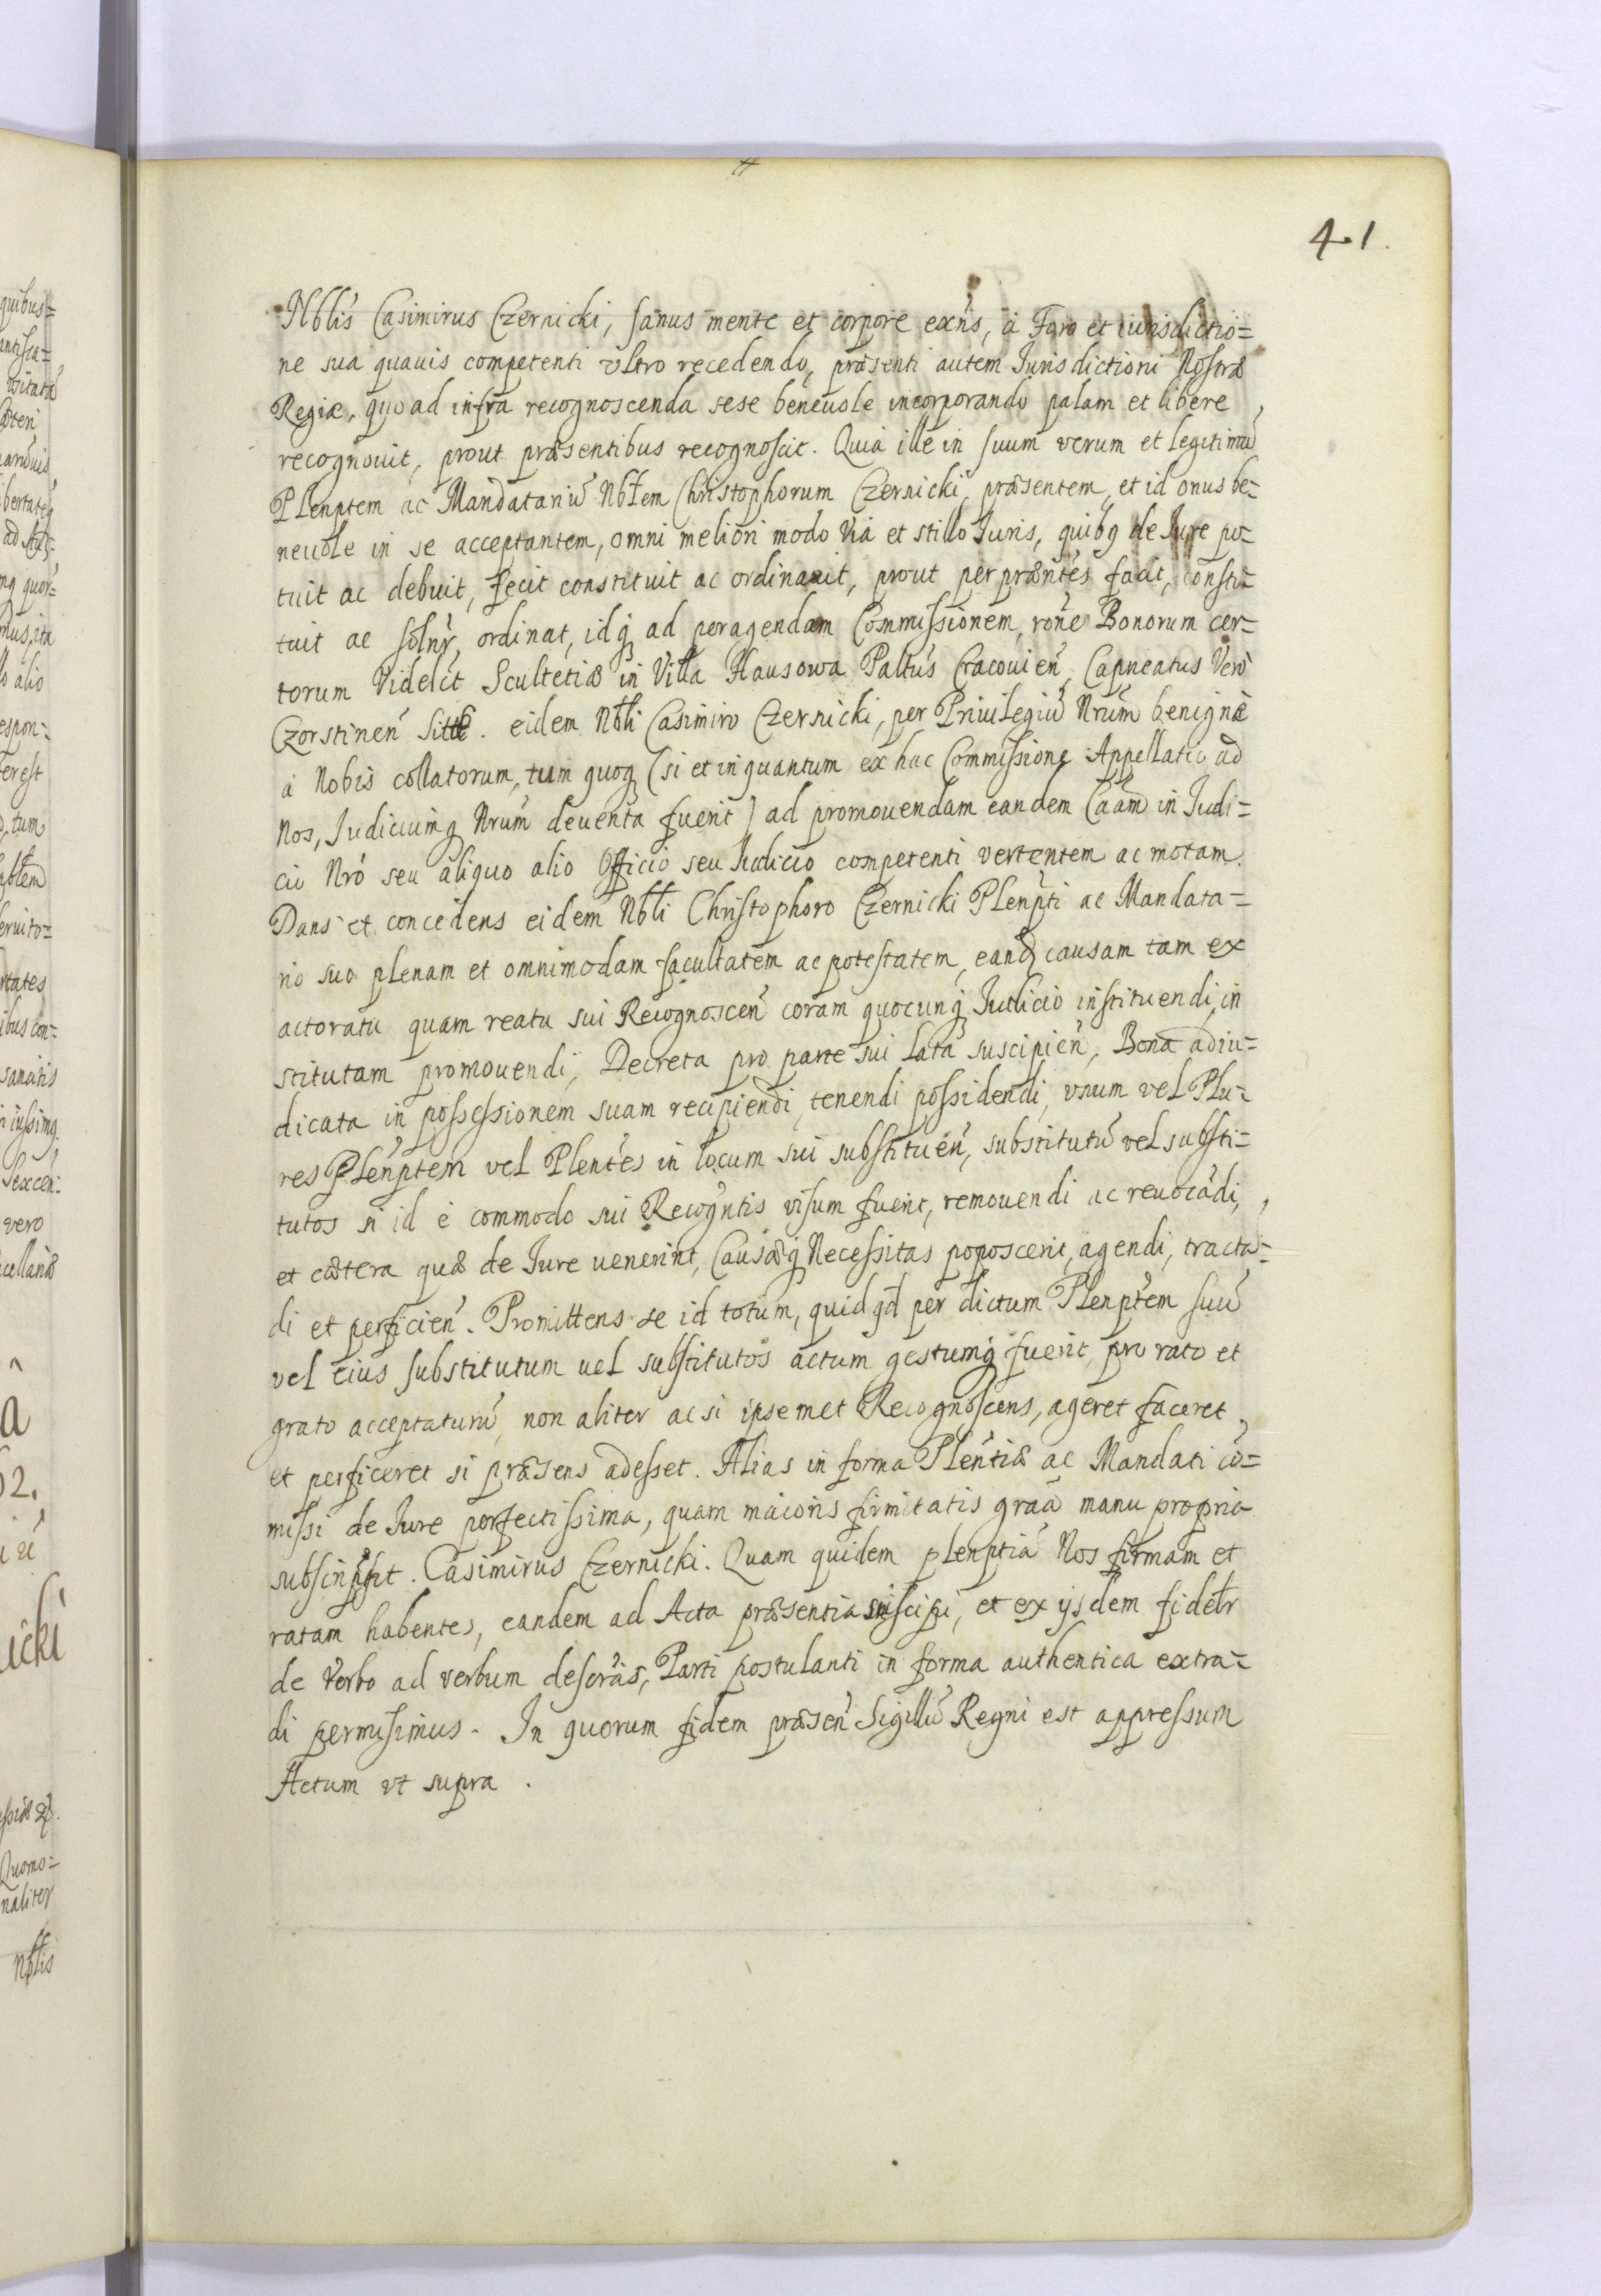 41.
Nblis Casimirus Czernicki, sanus mente et corpore exn̄s, à Foro et iurisdictio=
ne sua quauis competenti vltro recedendo, præsenti autem Jurisdictioni Nostræ
Regiæ, quo ad infra recognoscenda sese beneuole incorporando palam et libere
recognouit, prout præsentibus recognoscit. Quia ille in suum verum et legitimū
Plenptem ac Mandatariū Nblem Christophorum Czernicki, præsentem, et id onus be=
neuole in se acceptantem, omni meliori modo via et stillo Juris, quibq de Jure po=
tuit ac debuit, fecit constituit ac ordinauit, prout per præntes facit, consti=
tuit ac solnr ordinat, idq ad peragendam Commissionem, rōne Bonorum cer=
torum videlct Scultetiæ in Villa Hausowa Paltus Cracouien, Capneatus vero
Czorstinen sitæ. eidem Nbli Casimiro Czernicki, per Priuilegiū Nrūm benignè
à Nobis collatorum, tum quoq (si et inquantum ex hac Commissione Appellatio ad
Nos, Judiciumq Nrum deuenta fuerit) ad promouendam eandem Caām in Judi=
cio Nro seu aliquo alio Officio seu Judicio competenti vertentem ac motam.
Dans et concedens eidem Nbli Christophoro Czernicki Plenpti ac Mandata=
rio suo plenam et omnimodam facultatem ac potestatem, eand causam tam ex
actoratu quam reatu sui Recognoscen coram quocunq Judicio instituendi, in
stitutam promouendi, Decreta pro parte sui lata suscipien, Bona adiu=
dicata in possessionem suam recipiendi, tenendi possidendi, vnum vel Plu=
res Plenptem vel Plentes in locum sui substituen, substitutū vel substi=
tutos si id è commodo sui Recogntis visum fuerit, remouendi ac reuocādi,
et cætera quæ de Jure uenerint, Causæq Necessitas poposcerit, agendi, tractā=
di et perficien. Promittens se id totum, quidqd per dictum Plenptem suū
vel eius substitutum uel substitutos actum gestumq fuerit, pro rato et
grato acceptaturū, non aliter ac si ipsemet Recognoscens, ageret faceret
et perficeret si præsens adesset. Alias in forma Plentiæ ac Mandati cō=
missi de Jure perfectissima, quam maioris firmitatis graā manu propria
subscripsit. Casimirus Czernicki. Quam quidem plenptiā Nos firmam et
ratam habentes, eandem ad Acta præsentia suscipi, et ex ijsdem fidelr
de Verbo ad verbum descrās, Parti postulanti in forma authentica extra=
di permisimus. In quorum fidem præsen Sigillū Regni est appressum
Actum vt supra.